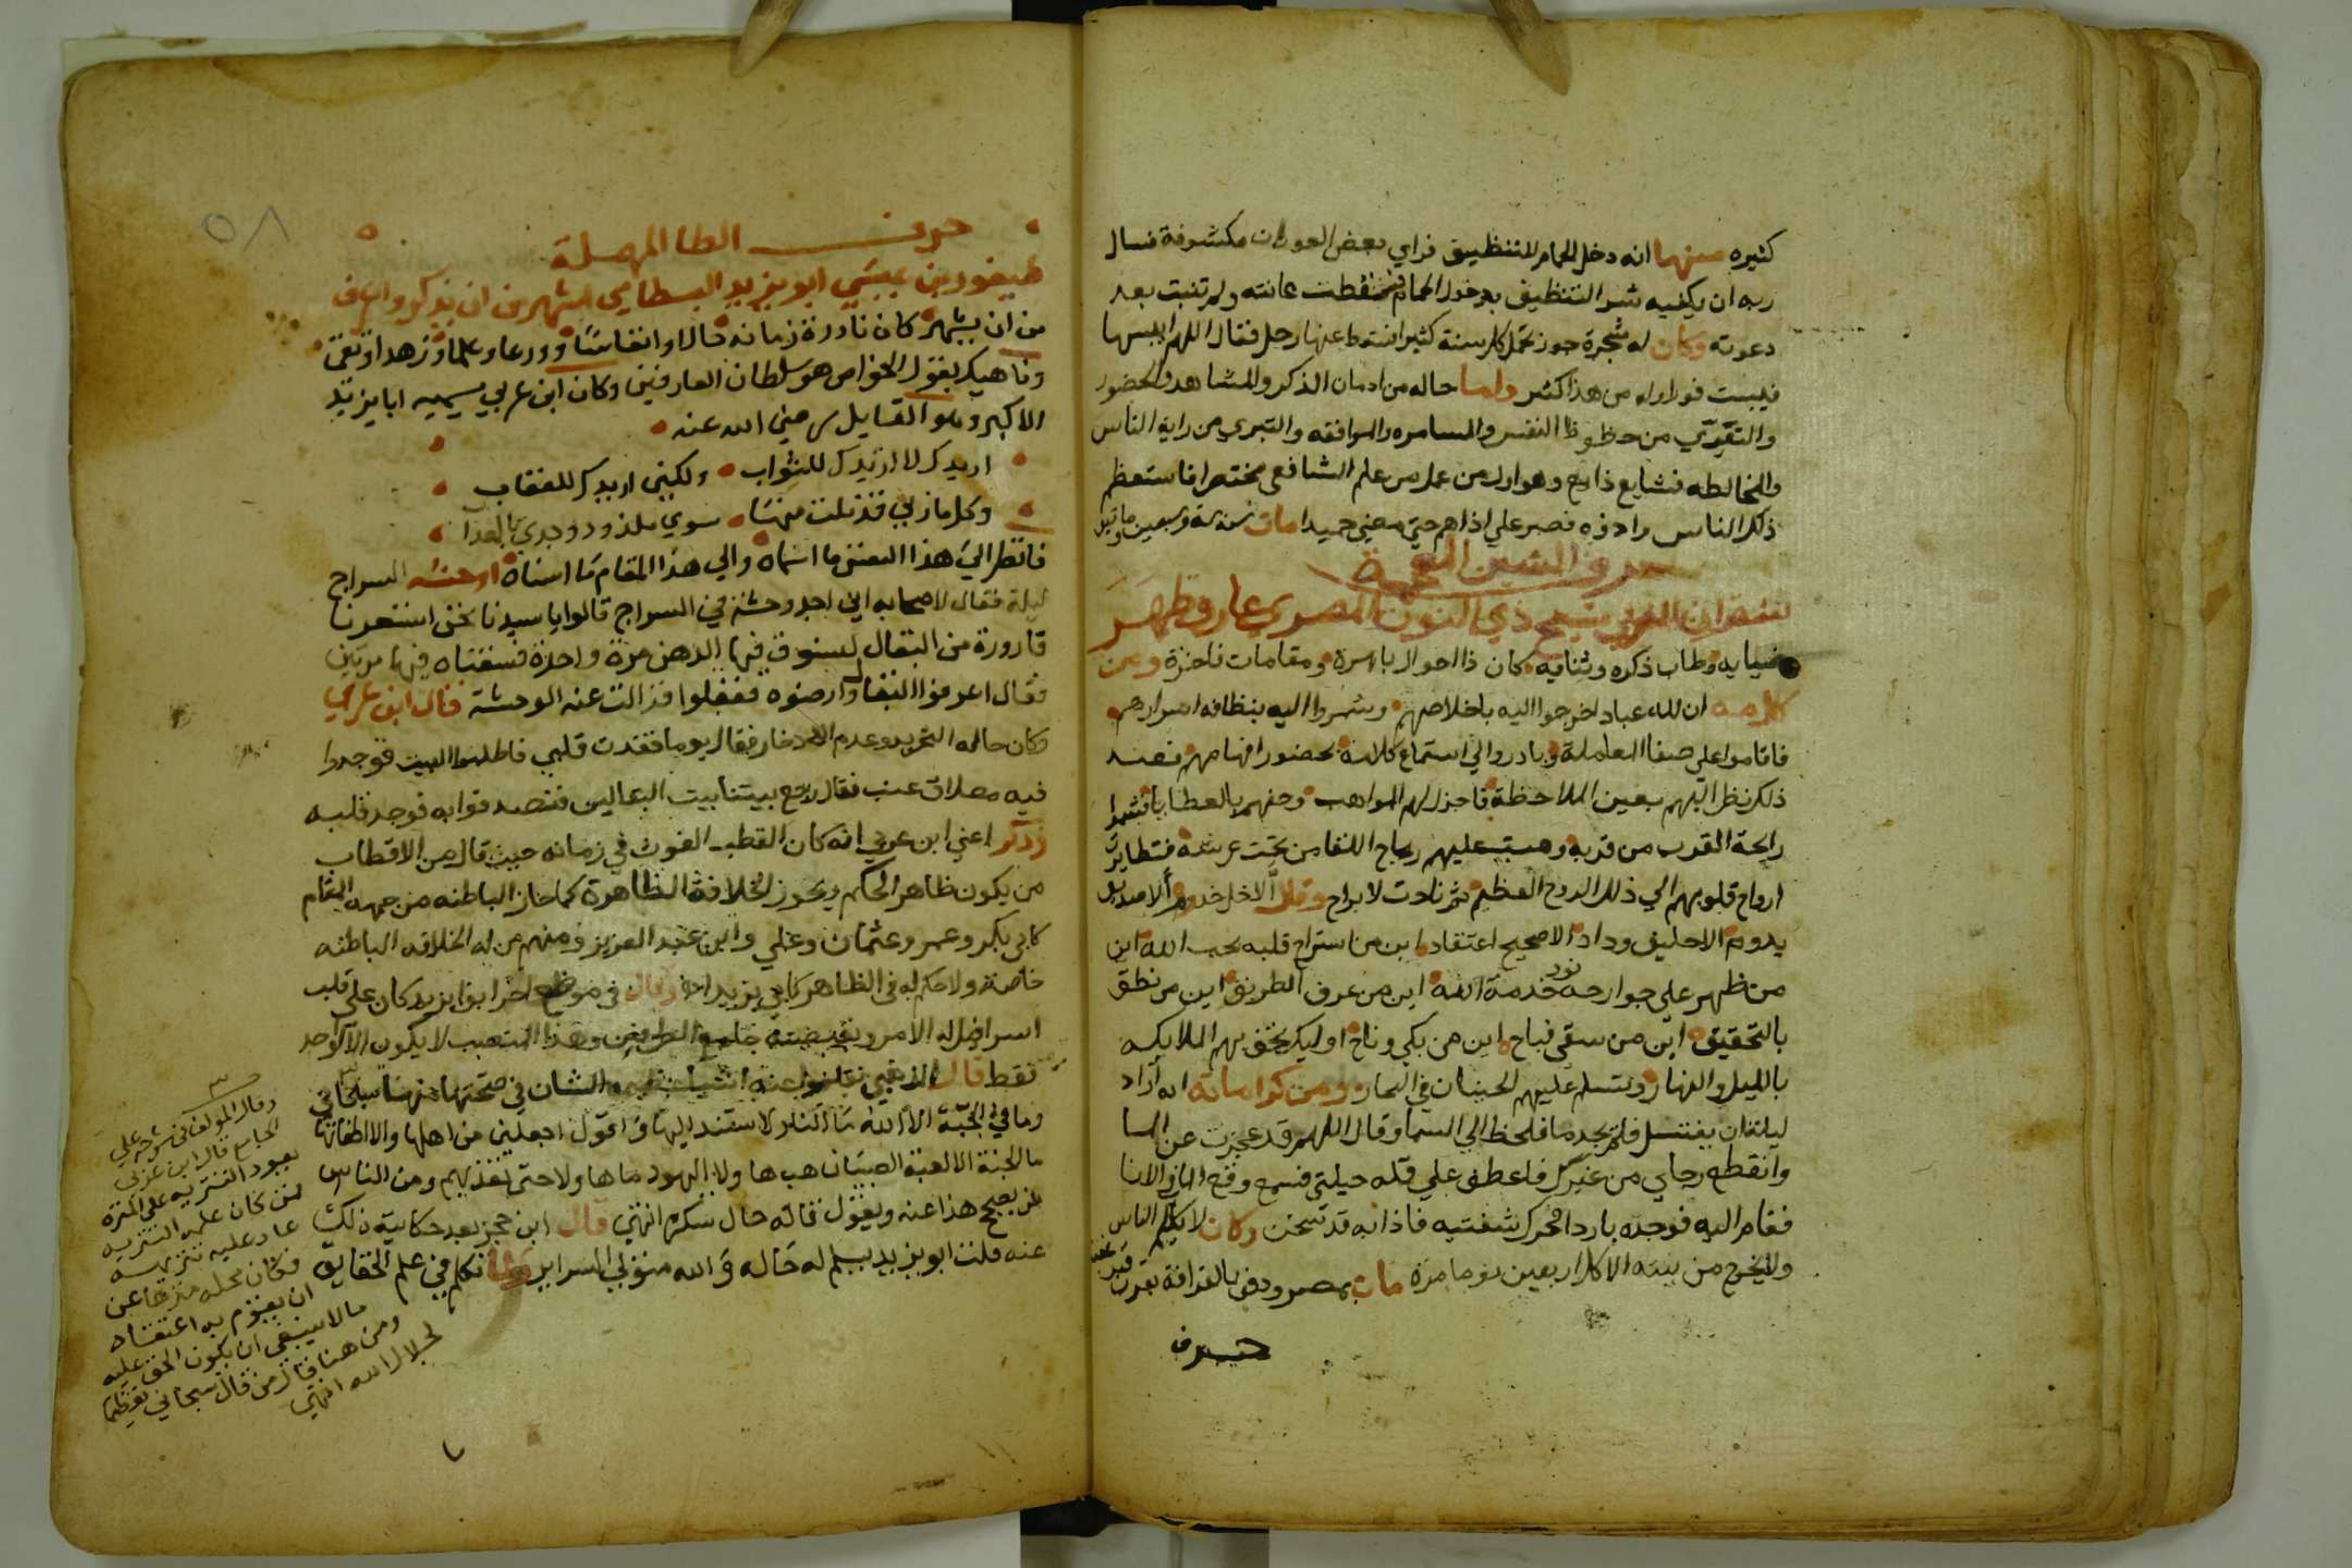 كثيره منها انه دخل الحمام للتنظيف فراي بعض العورات مكشوفة فسال
ربه ان يكفيه شر التنظيف بدخول الحمام فسقطت عانته ولم تنبت بعد
دعوته وكان له شجرة جوز تحمل كل سنة كثيرا فسقط عنها رجل فقال اللهم ايبسها
فيبست فورا وله من هذا كثير واما حاله من ادمان الذكر والمشاهد والحضور
والتعري من حظوظ النفس والمسامره والموافقه والتبري من راية الناس
والمخالطه فشايع ذايع وهو اول من عمل من علم الشافعي مختصرا فاستعظم
ذلك الناس واذوه فصبر علي اذاهم حتي مضي حميدا مات سنة وسبعين وماتين
حرف الشين المعجمة
شقران المغربي شيخ ذي النون المصري عارف ظهر
ضيايه وطاب ذكره وثنايه كان ذا احوال باهرة ومقامات فاخرة ومن
كلامه ان لله عبادا خرجوا اليه باخلاصهم وشمروا اليه بنظافه اسرارهم
فاقاموا علي صفا المعاملة وبادروا الي استماع كلامه بحضور افهامهم فعند
ذلك نظر اليهم بعين الملاحظة فاجزل لهم المواهب وحفهم بالعطايا فشموا
رايحة القرب من قربه وهبت عليهم رياح اللقا من تحت عرشه فتطايرت
ارواح قلوبهم الي ذلك الروح العظيم ثم نادت لابراح وقال الا خل خدوم الا صديق
يدوم الا حليف وداد الا صحيح اعتقاد اين من استراح قلبه بحب الله اين
من ظهر علي جوارحه نور خدمة الله اين من عرف الطريق اين من نطق
بالتحقيق اين من سقي فباح اين من بكي وناح اوليك تحف بهم الملايكه
بالليل والنهار وتسلم عليهم الحيتان في البحار ومن كراماته انه اراد
ليلة ان يغتسل فلم يجد ما فلحظ الي السما وقال اللهم قد عجزت عن الما
وانقطع رجاي من غيرك فاعطف علي قله حيلتي فسمع وقع الما في الانا
فقام اليه فوجده باردا فحرك شفتيه فاذا به قد تسخن وكان لا يكلم الناس
ولا يخرج من بيته الا كل اربعين يوما مرة مات بمصر ودفن بالقرافة بقرب قبر عقبة
حرف
٥٨
حرف الطا المهملة
طيفور بن عيسي ابو يزيد البسطامي اشهر من ان يذكر واعرف
من ان يشهر كان نادرة زمانه حالا وانفاسا وورعا وعلما وزهدا وتقي
وناهيك بقول الخواص هو سلطان العارفين وكان ابن عربي يسميه ابا يزيد
الاكبر وهو القايل رضي الله عنه
اريدك لا اريدك للثواب ولكني اريدك للعقاب
وكل ماربي قد نلت منها سوي ملذوذ وجدي بالعذاب
فانظر الي هذا النفس ما اسماه والي هذا المقام ما اسناه اوحشه السراج
ليلة فقال لاصحابه اني اجد وحشة في السراج قالوا يا سيدنا نحن استعرنا
قارورة من البقال لنسوق فيها الدهن مرة واحدة فسقناه فيها مرتين
فقال اعرفوا البقال وارضوه ففعلوا فزالت عنه الوحشة قال ابن عربي
وكان حاله التجريد وعدم الادخار فقال يوما فقدت قلبي فاطلبوا البيت فوجدوا
فيه معلاق عنب فقال رجع بيتنا بيت البقالين فتصدقوا به فوجد قلبه
وذكر اعني ابن عربي انه كان القطب الغوث في زمانه حيث قال من الاقطاب
من يكون ظاهر الحكم ويحوز الخلافة الظاهرة كما حاز الباطنه من جهه المقام
كابي بكر وعمر وعثمان وعلي وابن عبد العزيز ومنهم من له الخلافه الباطنه
خاصة ولا حكم له في الظاهر كابي يزيد وقال في موضع اخر ابو يزيد كان علي قلب
اسرافيل له الامر ونقيضته جامع الطرفين وهذا المنصب لا يكون الا لواحد
فقط قال الذهبي نقلوا عنه اشيا الشان في صحتها منها سبحاني
وما في الجبة الا الله ما النار لاستند اليها واقول اجعلني من اهلها والا اطفاتها
ما الجنة الا لعبة الصبيان هب ها ولا اليهود ما هاولا حتي تعذبهم ومن الناس
من يصحح هذا عنه ويقول قاله حال سكره انتهي قال ابن حجر بعد حكاية ذلك
عنه قلت ابو يزيد يسلم له حاله والله متولي السراير وقال تكلم في علم الحقايق
وقال المولف في شرحه علي
الجامع قال ابن عربي
يعود التنزيه علي المنزه
فمن كان علمه التنزيه
عاد عليه تنزيهه
فكان محله منزها عن
ان يقوم به اعتقاد
ما لا ينبغي ان يكون الحق عليه
ومن هنا قال من قال سبحاني تعظيما
لجلال الله انتهي